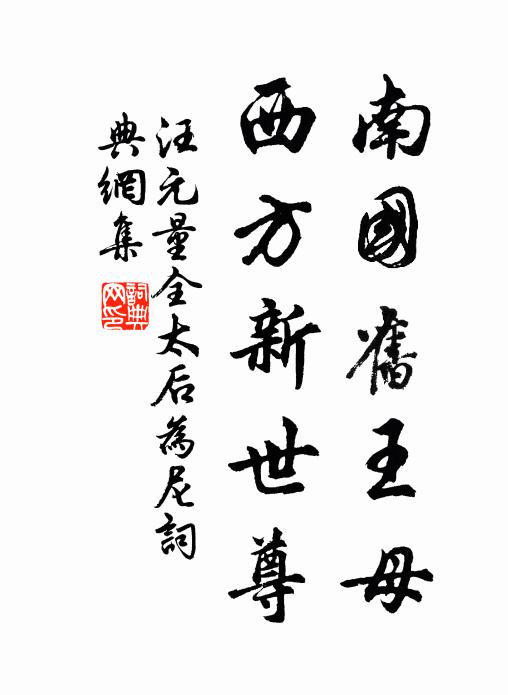 南國舊王母
西方新世尊
汪元量全太后為尼詞
典網集
詞典网印